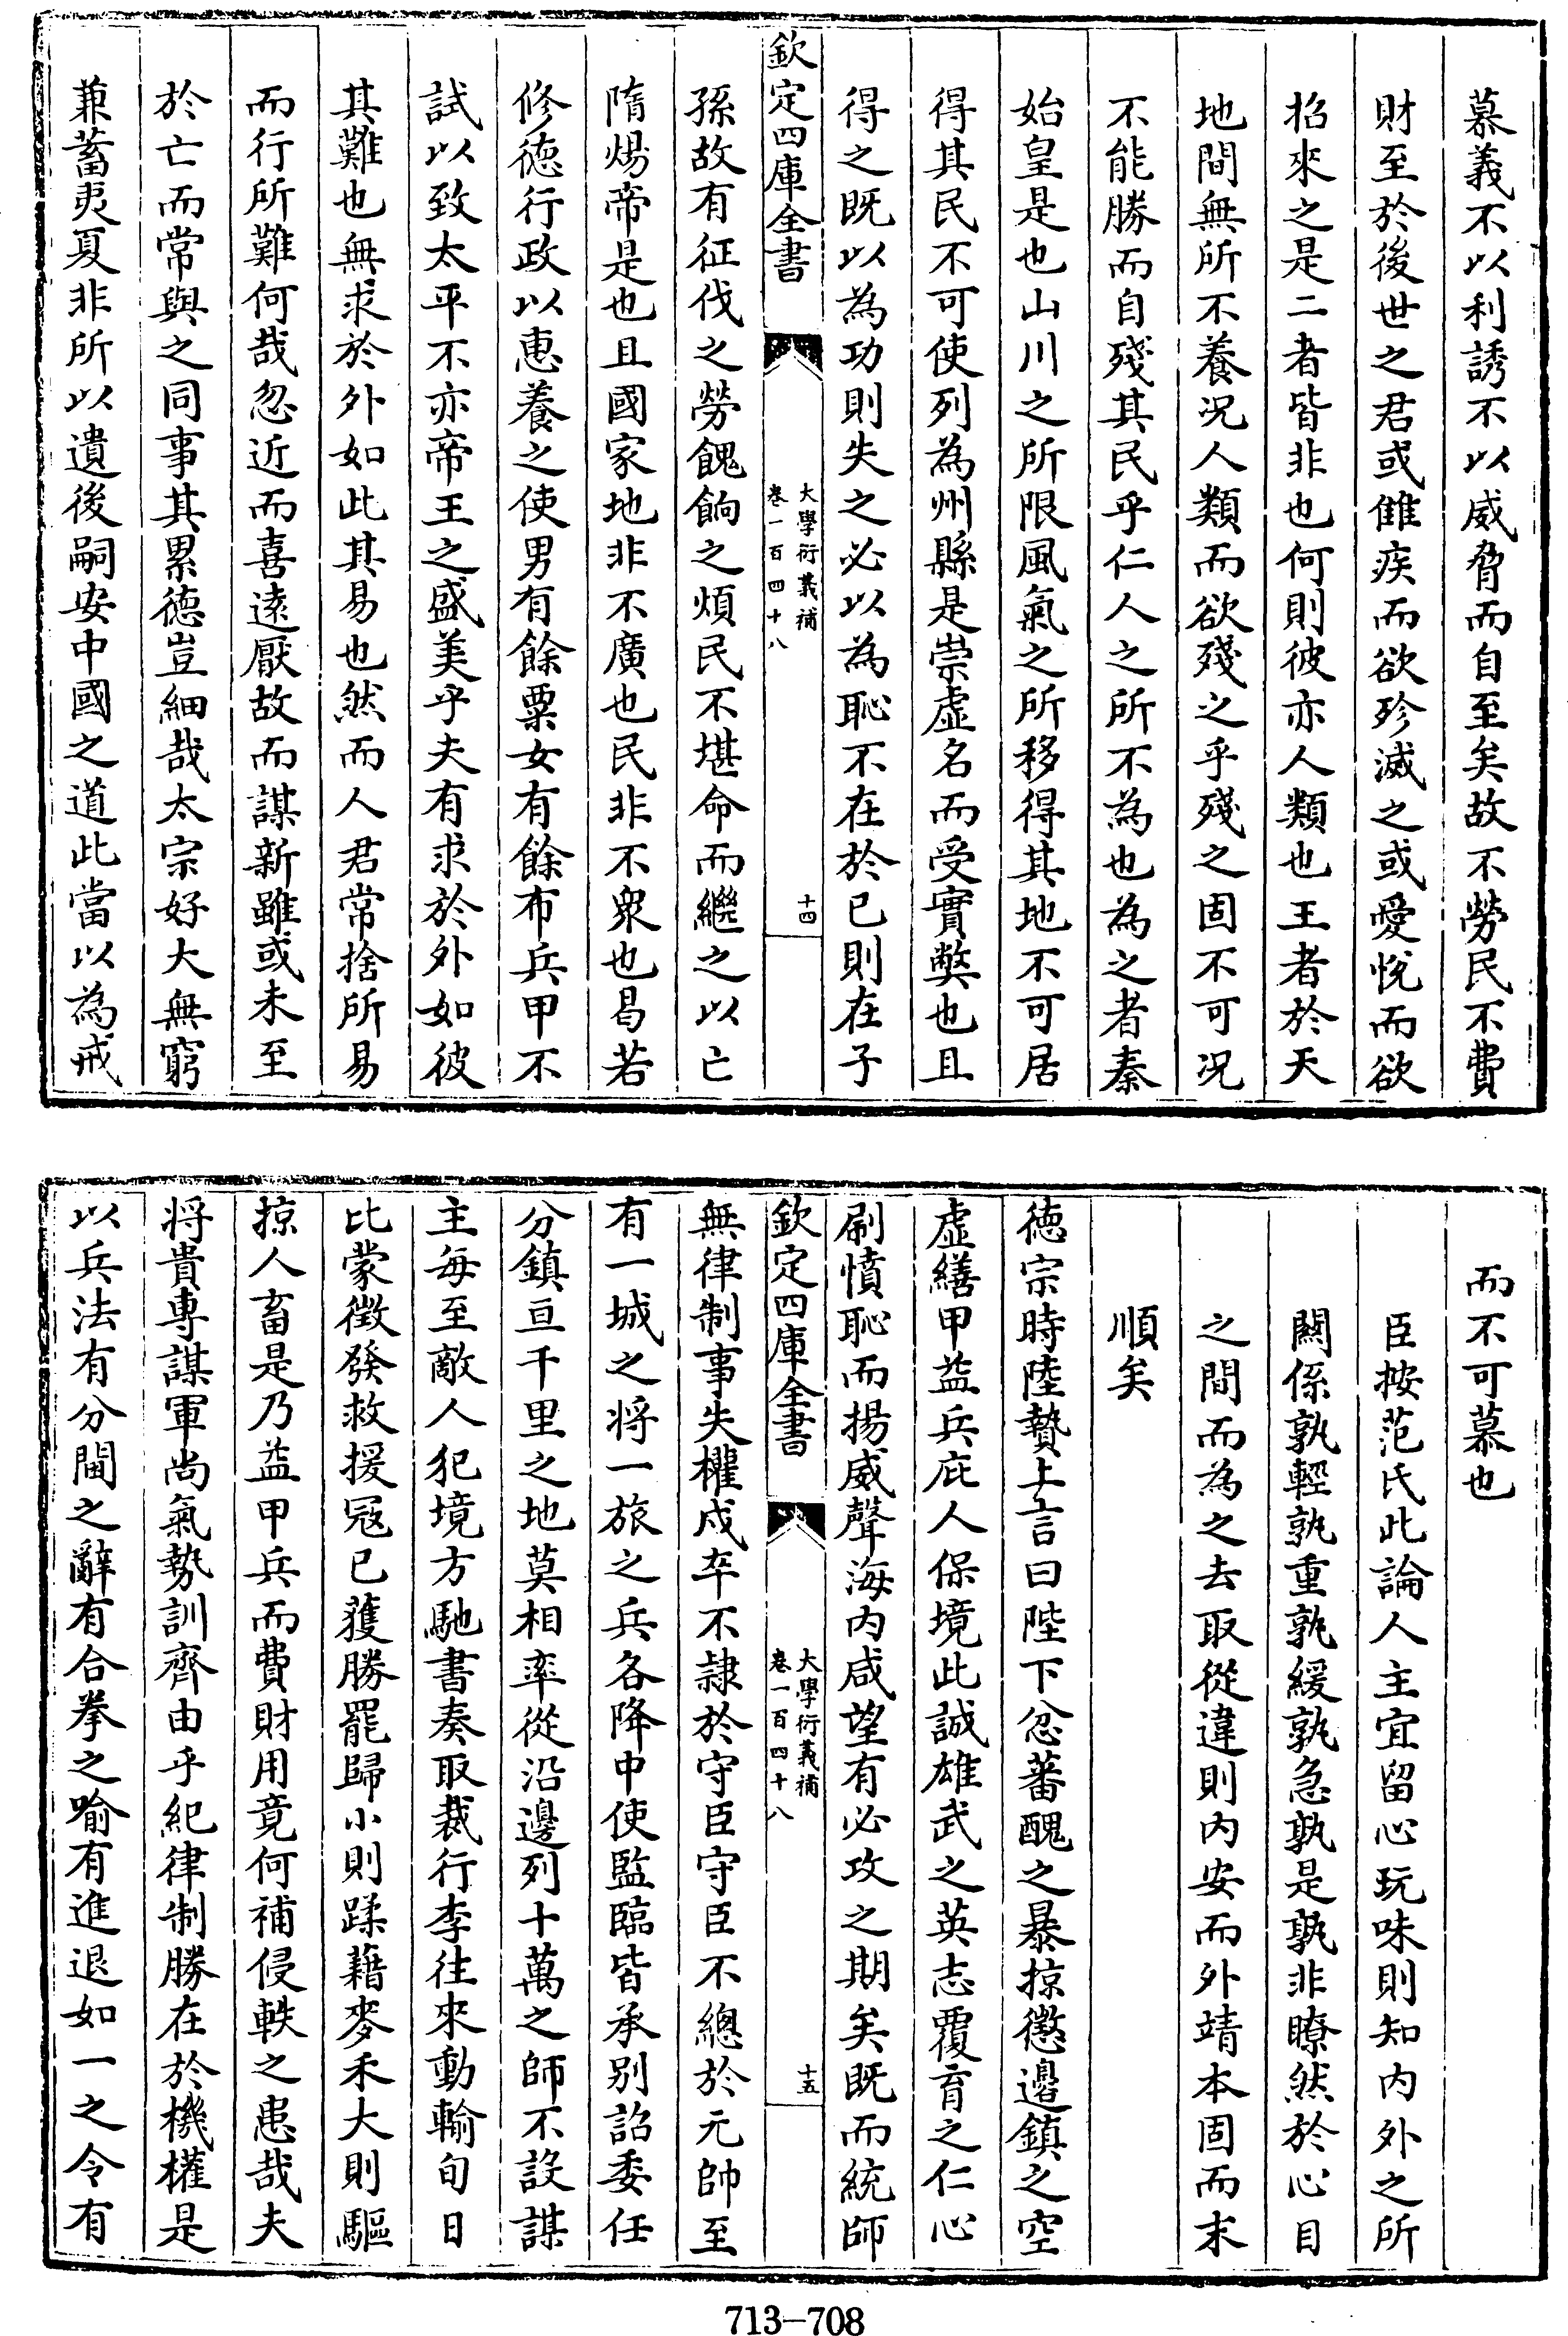 慕義不以利誘不以威脅而自至矣故不勞民不費
財至於後世之君或讎疾而欲殄滅之或愛悅而欲
招來之是二者皆非也何則彼亦人類也王者於天
地間無所不養况人類而欲殘之乎殘之固不可况
不能勝而自殘其民乎仁人之所不為也為之者秦
始皇是也山川之所限風氣之所移得其地不可居
得其民不可使列為州縣是崇虛名而受實弊也且
得之既以為功則失之必以為恥不在於已則在子
欽定四庫全書
大學衍義補
卷一百四十八
十四
孫故有征伐之勞餽餉之煩民不堪命而繼之以亡
隋煬帝是也且國家地非不廣也民非不衆也曷若
修德行政以惠養之使男有餘粟女有餘布兵甲不
試以致太平不亦帝王之盛美乎夫有求於外如彼
其難也無求於外如此其易也然而人君常捨所易
而行所難何哉忽近而喜遠厭故而謀新雖或未至
於亡而常與之同事其累德豈細哉太宗好大無窮
兼蓄夷夏非所以遺後嗣安中國之道此當以為戒
而不可慕也
臣按范氏此論人主宜留心玩味則知内外之所
關係孰輕孰重孰緩孰急孰是孰非瞭然於心目
之間而為之去取從違則内安而外靖本固而末
順矣
德宗時陸贄上言曰陛下忿蕃醜之暴掠懲邊鎮之空
虛繕甲益兵庇人保境此誠雄武之英志覆育之仁心
刷憤恥而揚威聲海内咸望有必攻之期矣既而統師
欽定四庫全書
大學衍義補
卷一百四十八
十五
無律制事失權戍卒不隷於守臣守臣不總於元帥至
有一城之將一旅之兵各降中使監臨皆承别詔委任
分鎮亘千里之地莫相率從沿邊列十萬之師不設謀
主每至敵人犯境方馳書奏取裁行李往來動輸旬日
比蒙徵發救援冦已獲勝罷歸小則蹂藉麥禾大則驅
掠人畜是乃益甲兵而費財用竟何補侵軼之患哉夫
将貴專謀軍尚氣勢訓齊由乎紀律制勝在於機權是
以兵法有分閫之辭有合拳之喻有進退如一之令有
713-708